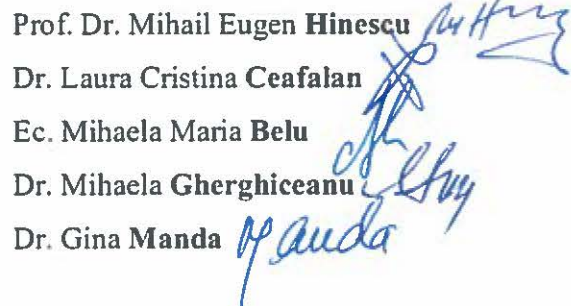 Prof. Dr. Mihail Eugen Hinescu
Dr. Laura Cristina Ceafalan
Ec. Mihaela Maria Belu
Dr. Mihaela Gherghiceanu
Dr. Gina Manda Manda